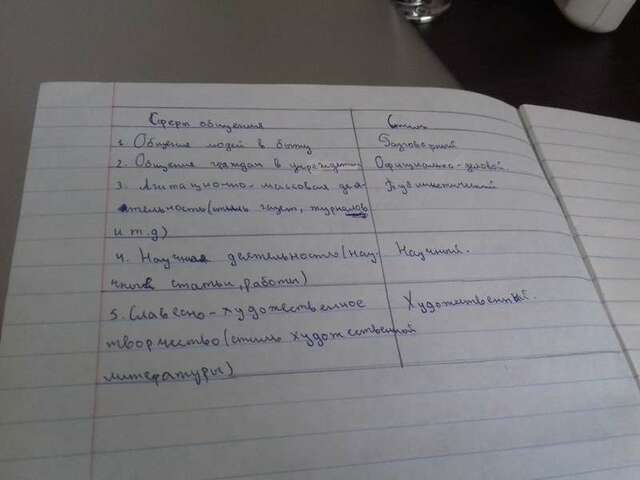 Сферы общения Стиль
1. Общение людей в быту Разговорный
2. Общение граждан в учреждении Официально-деловой.
3. Агитационно-массовая дея- Публицистический
тельность (стиль газет, журналов
и т.д)
4. Научная деятельность (нау- Научный.
чные статьи, работы)
5. Славесно-художественное Художественный.
творчество (стиль художественной
литературы)